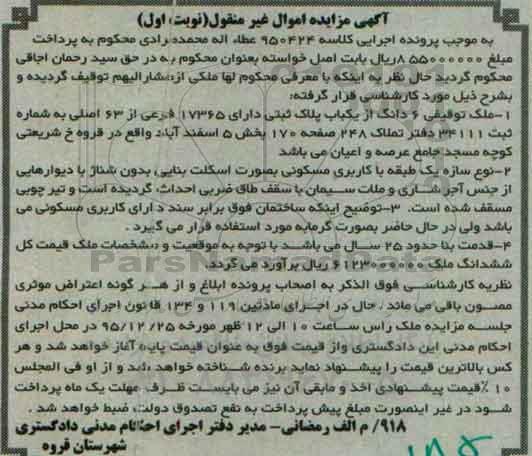 آگهی مزایده اموال غیر منقول(نوبت اول)
به موجب پرونده اجرایی کلاسه ۹۵۰۴۲۴ عطاء اله محمدمرادی محکوم به پرداخت
مبلغ ۸۵۵۰۰۰۰۰۰ ریال بابت اصل خواسته بعنوان محکوم به در حق سید رحمان اجاقی
محکوم گردید حال نظر به اینکه با معرفی محکوم لها ملکی از مشارالیهم توقیف گردیده و
بشرح ذیل مورد کارشناسی قرار گرفته:
۱-ملک توقیفی ۶ دانگ از یکباب پلاک ثبتی دارای ۱۷۳۶۵ فرعی از ۶۳ اصلی به شماره
ثبت ۳۴۱۱۱ دفتر تملاک ۲۴۸ صفحه ۱۷۰ بخش ۵ اسفند آباد واقع در قروه خ شریعتی
کوچه مسجد جامع عرصه و اعیان می باشد
۲-نوع سازه یک طبقه با کاربری مسکونی بصورت اسکلت بنایی بدون شناژ با دیوارهایی
از جنس آجر شاری و ملات سیمان با سقف طاق ضربی احداث گردیده است و تیر چوبی
مسقف شده است. ۳-توضیح اینکه ساختمان فوق برابر سند دارای کاربری مسکونی می
باشد ولی در حال حاضر بصورت گرمابه مورد استفاده قرار می گیرد .
۴-قدمت بنا حدود ۲۵ سال می باشد با توجه به موقعیت و مشخصات ملک قیمت کل
ششدانگ ملک ریال برآورد می گردد.
نظریه کارشناسی فوق الذکر به اصحاب پرونده ابلاغ و از هر گونه اعتراض موثری
مصون باقی می ماند . حال در اجرای مادتین ۱۱۹ و ۱۳۴ قانون اجرای احکام مدنی
جلسه مزایده ملک راس ساعت ۱۰ الی ۱۲ ظهر مورخه ۹۵/۱۲/۲۵ در محل اجرای
احکام مدنی این دادگستری واز قیمت فوق به عنوان قیمت پایه آغاز خواهد شد و هر
کس بالاترین قیمت را پیشنهاد نماید برنده شناخته خواهد شد و از او فی المجلس
۱۰٪ قیمت پیشنهادی اخذ و مابقی آن نیز می بایست ظرف مهلت یک ماه پرداخت
شود در غیر اینصورت مبلغ پیش پرداخت به نفع تصدوق دولت ضبط خواهد شد .
۹۱۸/ م الف رمضانی- مدیر دفتر اجرای احکام مدنی دادگستری
شهرستان قروه